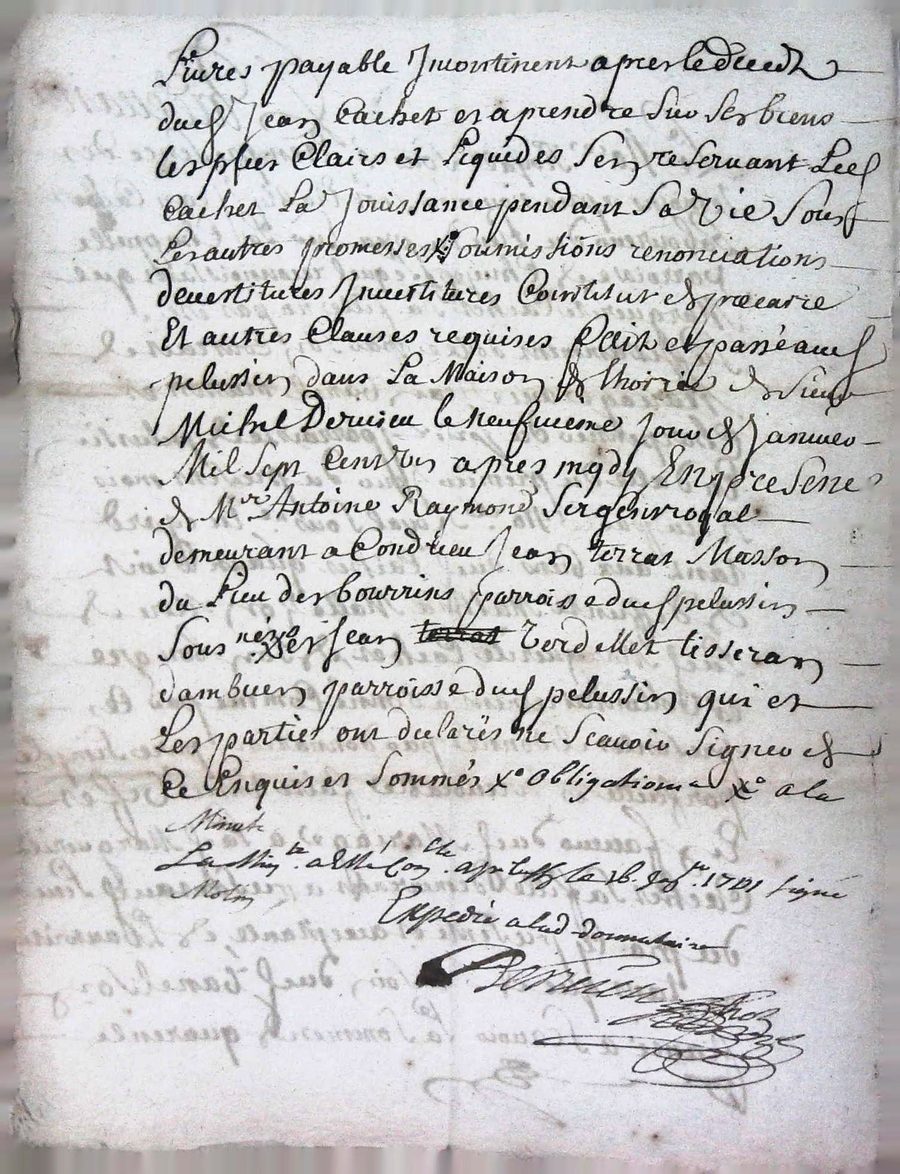 Livres payable Incontinent apres le deced
dud Jean Cachet et a prendre sur ses biens
les plus Clairs et Liquides sen reservant Led
Cachet La Jouissance pendant sa vie sous
Les autres promesses soumissions renonciations
devestitures Investitures Constitut et precaire
Et autres Clauses requises fait et passé aud
pelussin dans La Maison de lhoirie de sieur
Michel Dervieu le neufvieme Jour de Janvier
Mil Sept Cent apres midy En presence
de Mre Antoine Raymond Sergent royal
demeurant a Condrieu Jean terrat Masson
du Lieu des bourrins parroisse dud pelussin
Sous et Jean terrat tordellet tisseran
dambuen parroisse dud pelussin qui et
Les partie ont declarés ne Scavoir Signer de
Ce Enquis et Sommés Xe obligation Xe a la
Minute
La a esté le signé
Molin
Expedié a lad donnataire
Dervieu